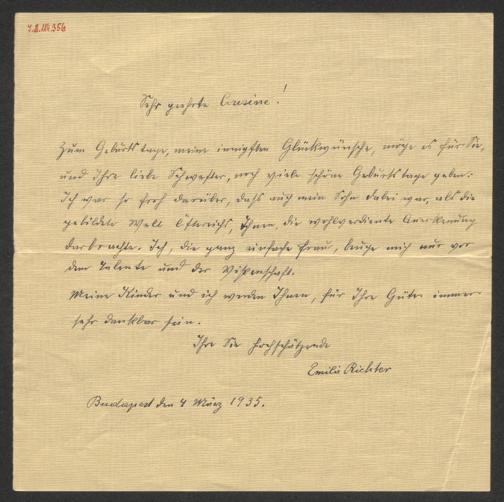 I.N. 111.356
Sehr geehrte Cousine!
Zum Geburtstage, meine innigsten Glückwünsche, möge es für Sie,
und Ihre liebe Schwester, noch viele schöne Geburtstage geben.
Ich war so froh darüber, dass auch mein Sohn dabei war, als die
gebildete Welt Österreichs, Ihnen, die wohlverdiente Anerkennung
darbrachte. Ich, die ganz einfache Frau, beuge mich nur vor
dem Talente und der Wissenschaft.
Meine Kinder und ich werden Ihnen, für Ihre Güte immer
sehr dankbar sein.
Ihre Sie hochschätzende
Emilie Richter
Budapest den 4 März 1935.